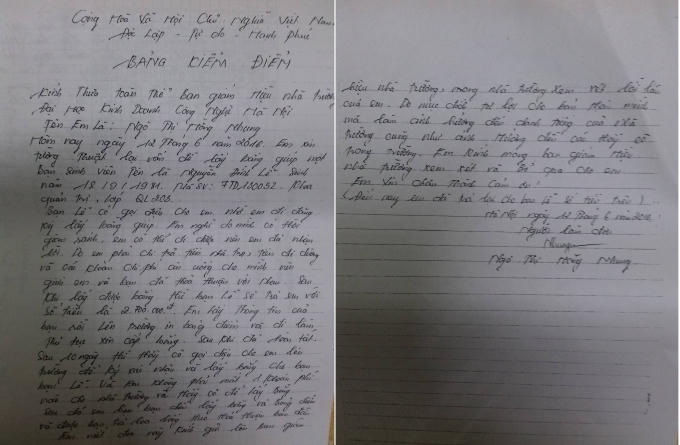 Cộng Hòa Xã Hội Chủ Nghĩa Việt Nam
Độc Lập - Tự do - Hạnh Phúc
BẢNG KIỂM ĐIỂM
Kính Thưa toàn Thể Ban giám Hiệu nhà trường
Đại Học Kinh Doanh Công Nghệ Hà Nội
Tên Em Là: Ngô Thị Hồng Nhung
Hôm nay ngày 12 Tháng 6 năm 2016. Em xin
tường Thuật lại vấn đề lấy bằng giúp một
bạn Sinh viên Tên là Nguyễn Đình Lê Sinh
năm 18/9/1991. Mã SV: 7TD130052. Khoa
quản trị, lớp QL
Bạn Lê có gọi điện cho em, nhờ em đi đăng
ký lấy bằng giúp. Em nghĩ do mình có thời
gian rảnh, em có thể đi được nên em đã nhận
lời. Do em phải chi trả tiền nhà trọ, tiền đi đường
và các khoản chi phí ăn uống cho mình nên
giữa em và bạn đã thoả thuận với nhau. Sau
khi lấy được bằng thì bạn Lê sẽ trả em với
số tiền là 2.700.000đ. Em lấy Thông tin của
bạn rồi Lên trường in bảng điểm và đi làm
Thủ tục xin cấp bằng. Sau khi đã hoàn tất.
Sau 10 ngày thì Thầy cô gọi điện cho em lên
trường để ký xác nhận và lấy bằng cho bạn
bạn Lê. Và Em không phải mất 1 khoản phí
nào cho nhà trường và Thầy cô để lấy bằng
Sau đó em hẹn bạn đến lấy bằng và bảng điểm
và được bạn trả thoả thuận ban đầu
Em viết đơn này kính gửi lên ban giám
hiệu nhà trường, mong nhà trường xem xét lỗi lầm
của em. Do mục đích tư lợi cho bản thân mình
mà làm ảnh hưởng đến danh tiếng của nhà
trường cũng như ảnh hưởng đến các thầy cô
trong trường. Em kính mong ban giám Hiệu
nhà trường xem xét và Bỏ qua cho em
Em Xin chân Thành Cảm ơn!
(Đến nay em đã trả lại cho bạn Lê số tiền trên).
Hà Nội ngày 12 Tháng 6 năm 2016.
Người làm đơn
Nhung
Ngô Thị Hồng Nhung